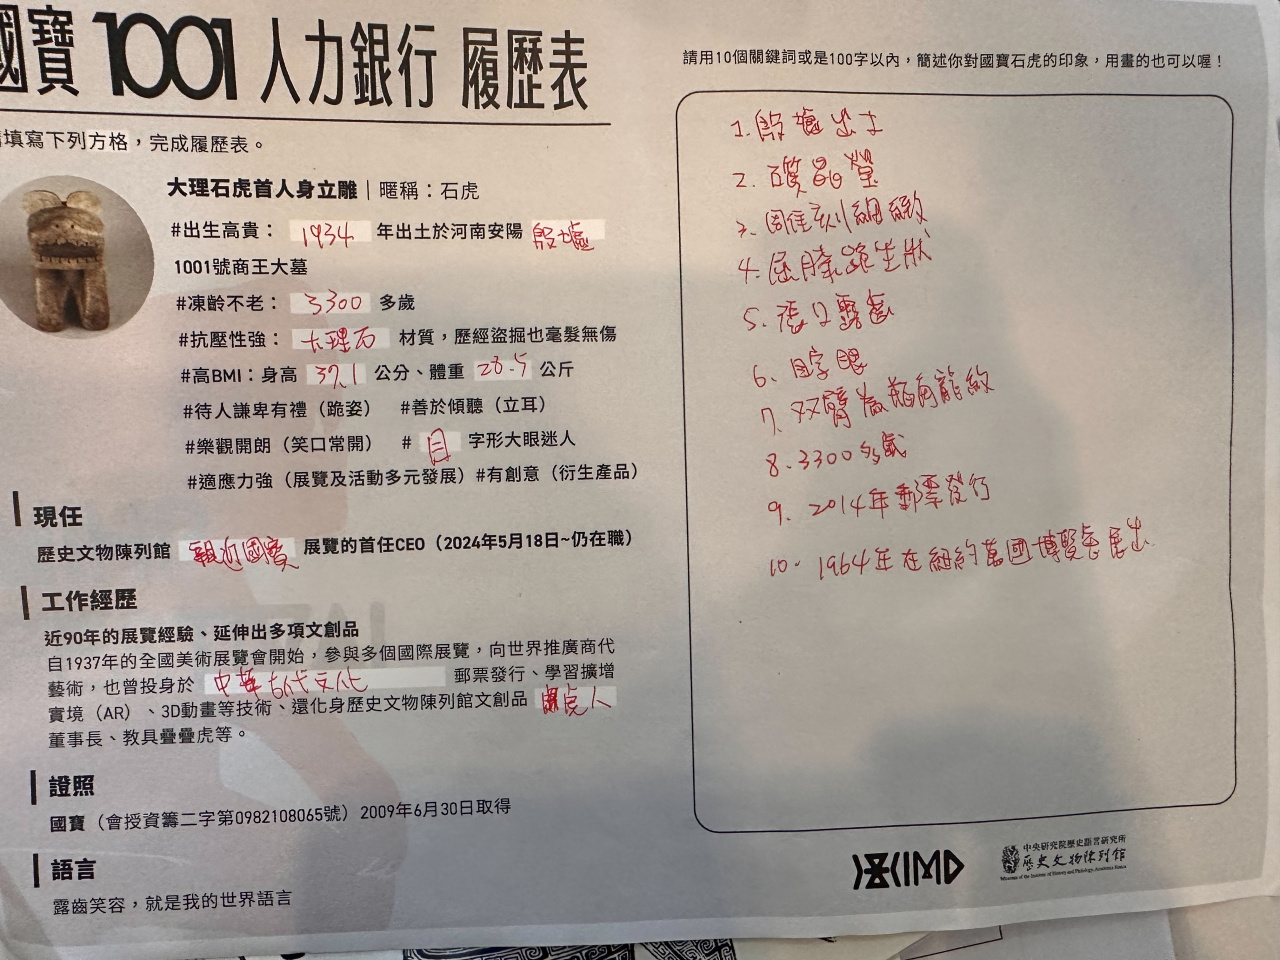 國寶 1001 人力銀行 履歷表
填寫下列方格，完成履歷表。
大理石虎首人身立雕｜暱稱：石虎
#出生高貴： 1934 年出土於河南安陽 殷墟
1001號商王大墓
#凍齡不老： 3300 多歲
#抗壓性強： 大理石 材質，歷經盜掘也毫髮無傷
#高BMI：身高 37.1 公分、體重 28.5 公斤
#待人謙卑有禮（跪姿） #善於傾聽（立耳）
#樂觀開朗（笑口常開） # 目 字形大眼迷人
#適應力強（展覽及活動多元發展）#有創意（衍生產品）
現任
歷史文物陳列館 親近國寶 展覽的首任CEO（2024年5月18日~仍在職）
工作經歷
近90年的展覽經驗、延伸出多項文創品
自1937年的全國美術展覽會開始，參與多個國際展覽，向世界推廣商代
藝術，也曾投身於 中華古代文化 郵票發行、學習擴增
實境（AR）、3D動畫等技術、還化身歷史文物陳列館文創品 虎人
董事長、教具疊疊虎等。
證照
國寶（會授資籌二字第0982108065號）2009年6月30日取得
語言
露齒笑容，就是我的世界語言
請用10個關鍵詞或是100字以內，簡述你對國寶石虎的印象，用畫的也可以喔！
1. 殷墟出土
2. 質晶瑩
3. 雕刻細緻
4. 屈膝跪坐狀
5. 張口露齒
6. 目字眼
7. 双臂為瓶角龍紋
8. 3300多歲
9. 2014年郵票發行
10. 1964年在紐約萬國博覽會展出
中央研究院歷史語言研究所
歷史文物陳列館
Museum of the Institute of History and Philology, Academia Sinica